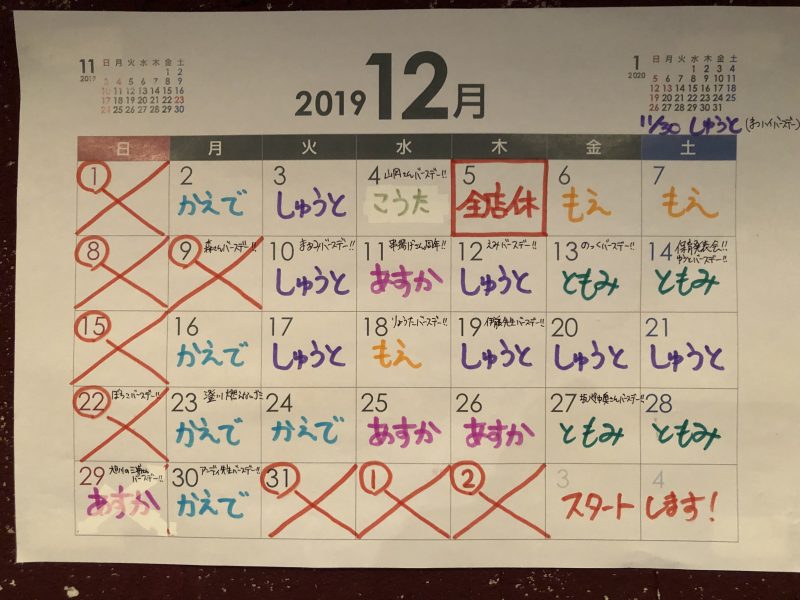 11
2019
日 月 火 水 木 金 土
1 2
3 4 5 6 7 8 9
10 11 12 13 14 15 16
17 18 19 20 21 22 23
24 25 26 27 28 29 30
2019 12月
1
2020
日 月 火 水 木 金 土
1 2 3 4
5 6 7 8 9 10 11
12 13 14 15 16 17 18
19 20 21 22 23 24 25
26 27 28 29 30 31
11/30 しゅうと
日 月 火 水 木 金 土
1 2 3 4 山岡さんバースデー!! 5 6 7
かえで しゅうと こうた 全店休 もえ もえ
8 9 森さんバースデー!! 10 まなみバースデー!! 11 12 えみバースデー!! 13 のっくバースデー!! 14 保育発表会!!
ゆうとバースデー!!
しゅうと あすか しゅうと ともみ ともみ
15 16 17 18 りょうたバースデー!! 19 伊藤先生バースデー!! 20 21
かえで しゅうと もえ しゅうと しゅうと しゅうと
22 ぽちこバースデー!! 23 24 25 26 27 28
かえで かえで あすか あすか ともみ ともみ
29 バースデー!! 30 アンディ先生バースデー!! 31 1 2 3 4
あすか かえで スタート します!